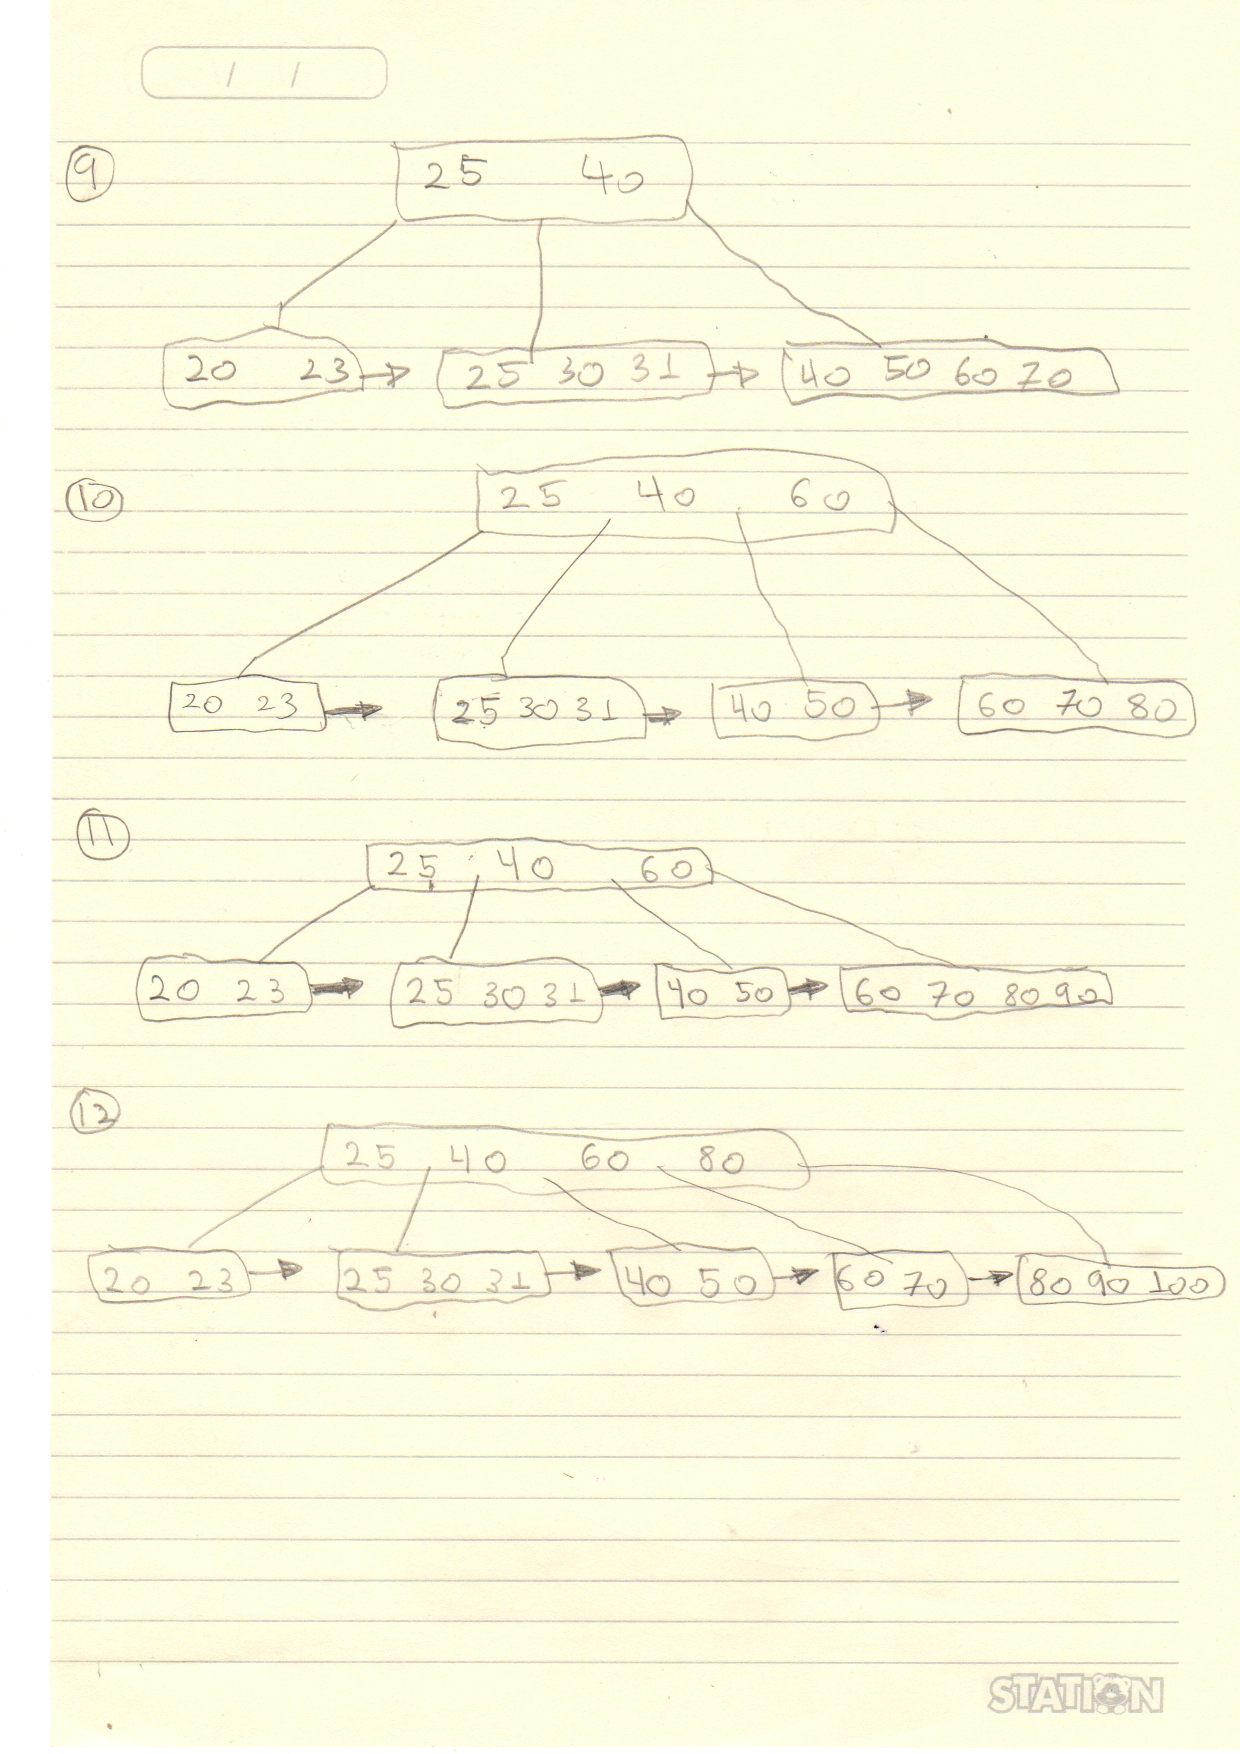 / /
9
25 40
20 23 25 30 31 40 50 60 70
10
25 40 60
20 23 25 30 31 40 50 60 70 80
11
25 40 60
20 23 25 30 31 40 50 60 70 80 90
12
25 40 60 80
20 23 25 30 31 40 50 60 70 80 90 100
STATION